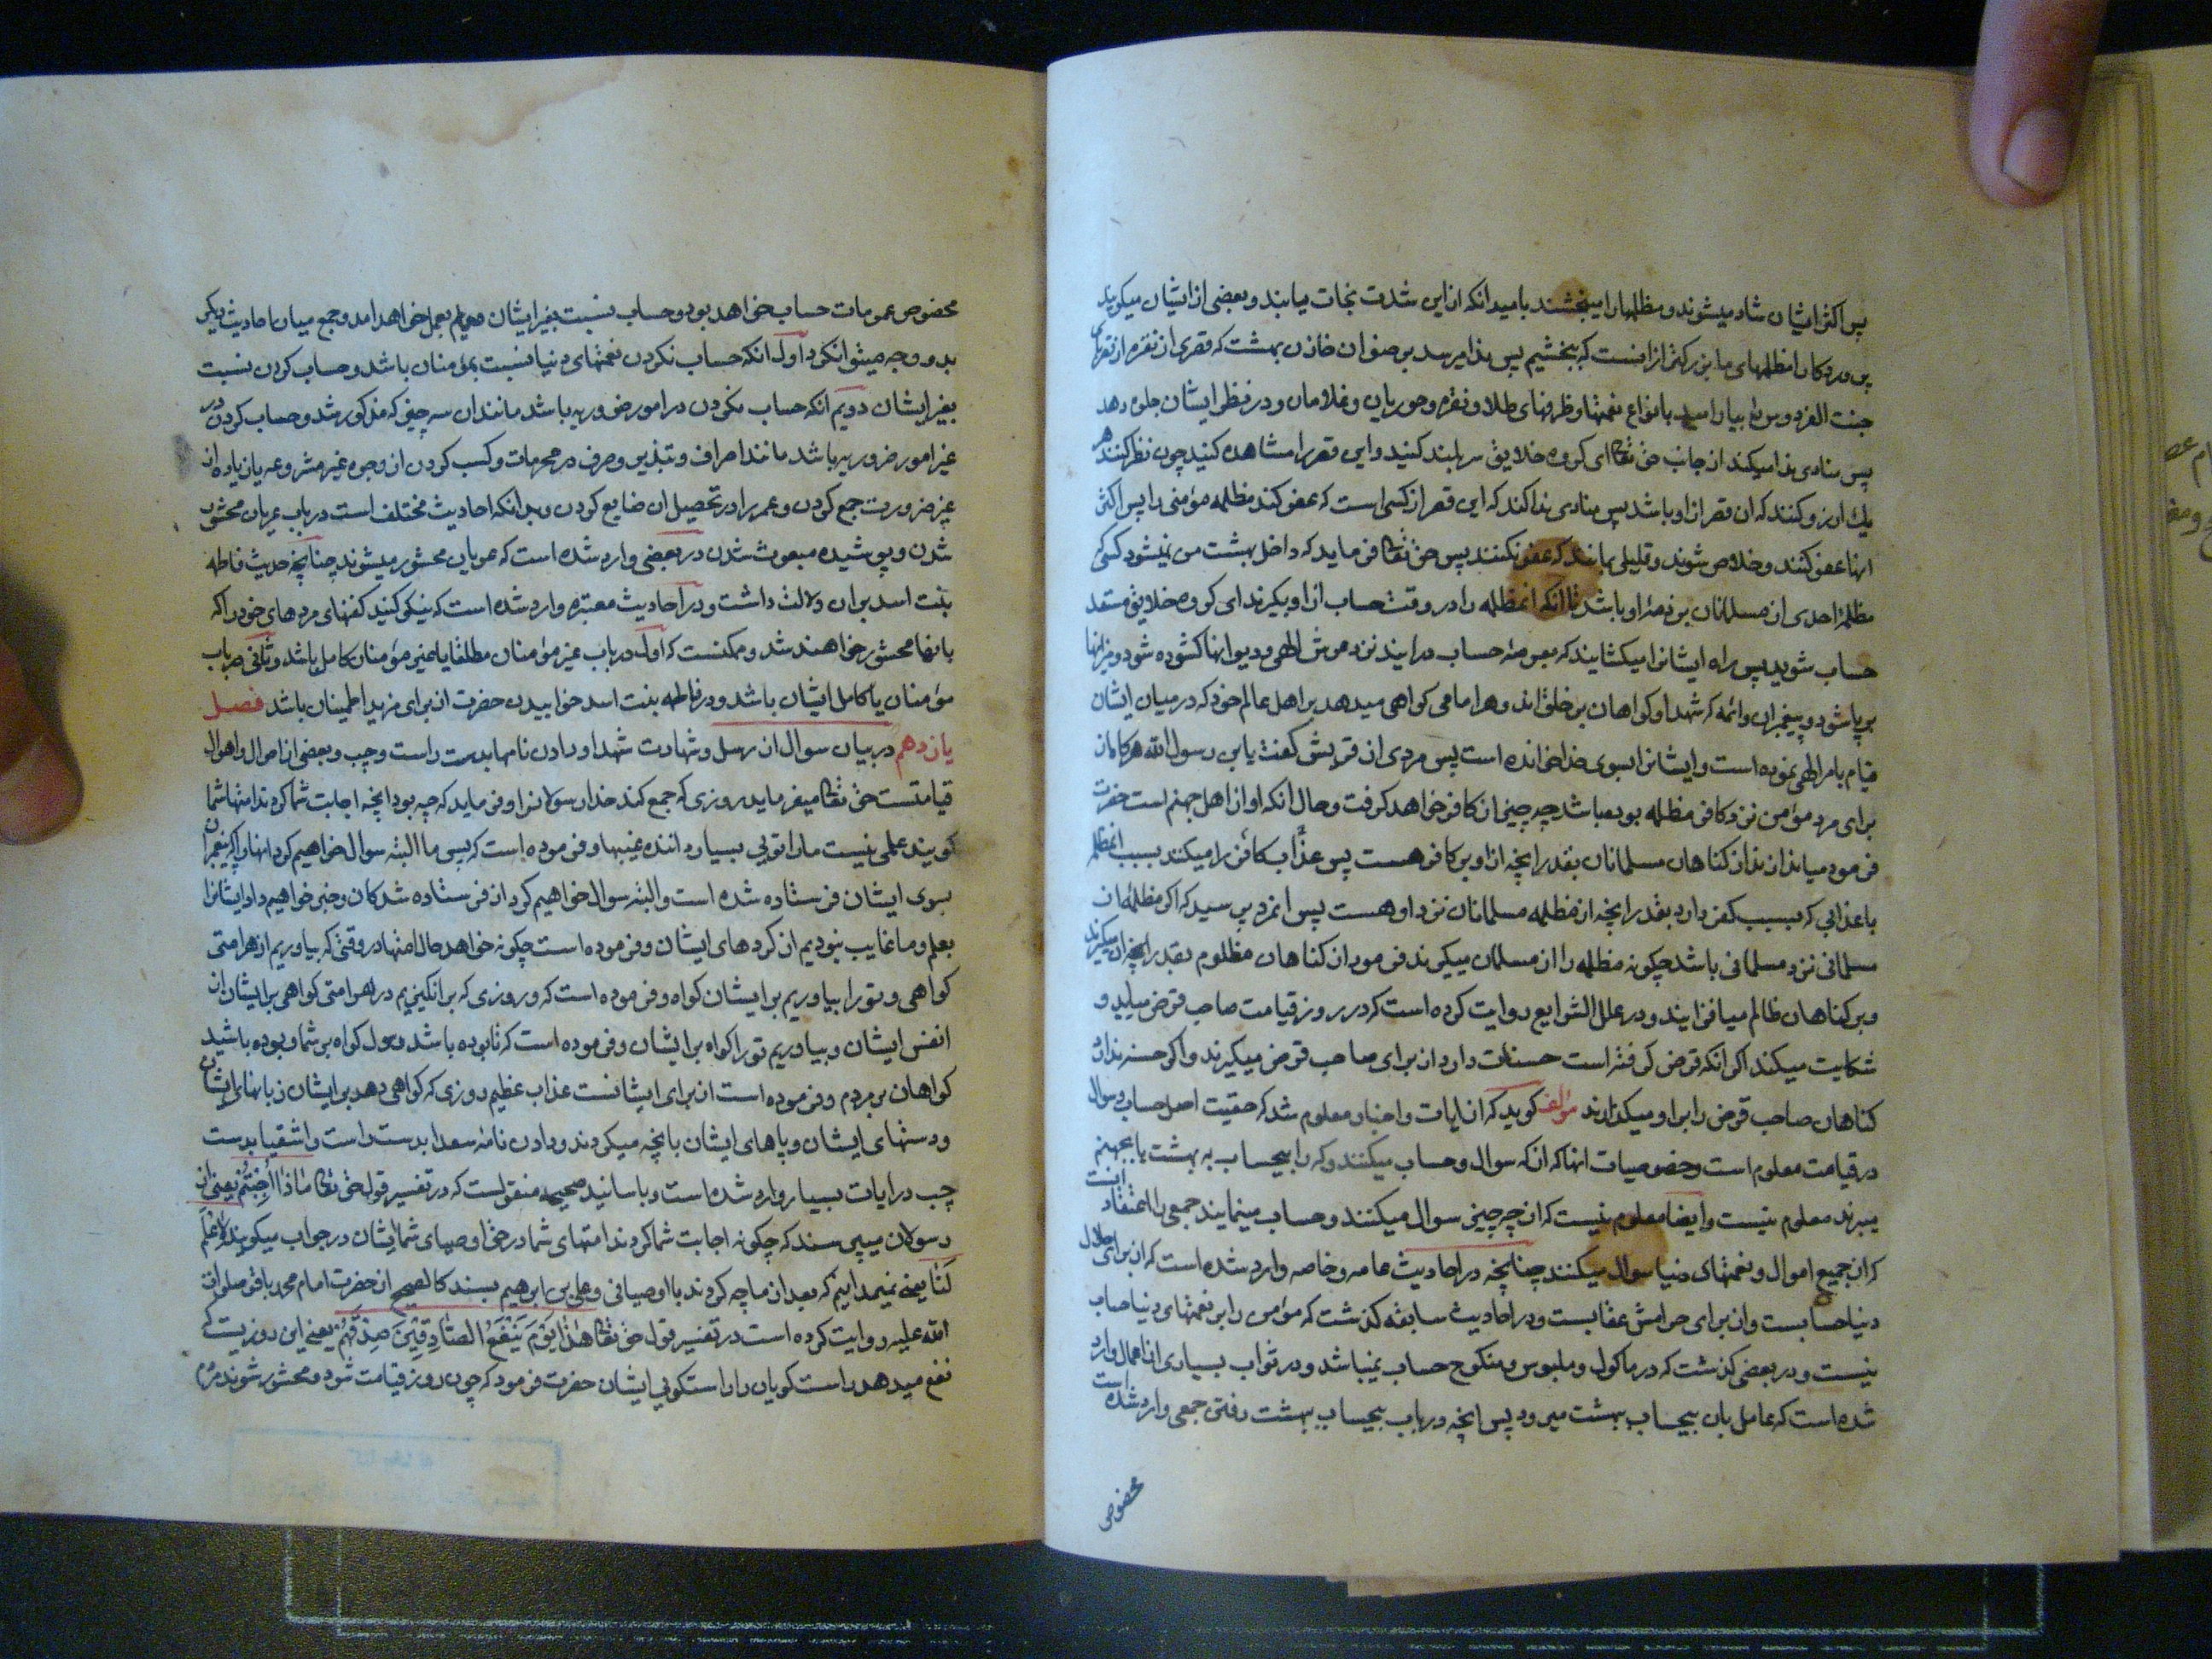 پس اکثر ایشان شاد میشوند و مظلمها را میبخشند بامید انکه از این شدت نجات میابند و بعضی از ایشان میکویند
پروردکارا مظلمهای ما بزرکتر از انست که ببخشیم پس ندا میرسد برضوان خازن بهشت که قصری از نقره از قصرهای
جنت الفردوس را بیارایید بانواع نعمتها و ظرفهای طلا و نقره و حوریان و غلامان و در نظر ایشان جلوه دهد
پس منادی ندا میکند از جانب حق تعالی ای کروه خلایق سر بلند کنید و این قصر را مشاهده کنید چون نظر کنند هر
یك ارزو کنند که ان قصر از او باشد پس منادی ندا کند که این قصر از کسی است که عفو کند مظلمه مؤمنی را پس اکثر
انها عفو کنند و خلاص شوند و قلیلی بمانند که عفو نکنند پس حق تعالی فرماید که داخل بهشت من نمیشود کسی که
مظلمهٔ احدی از مسلمانان بر ذمهٔ او باشد تا انکه انمظلمه را در وقت حساب از او بکیرند ای کروه خلایق مستعد
حساب شوید پس راه ایشانرا میکشایند که بعرصهٔ حساب درایند نزد عرش الهی و دیوانها کشوده شود و میزانها
برپا شود و پیغمبران و ائمه که شهدا و کواهان بر خلق اند و هر امامی کواهی میدهد بر اهل عالم خود که در میان ایشان
قیام بامر الهی نموده است و ایشانرا بسوی خدا خوانده است پس مردی از قریش کفت یابن رسول الله هرکاه از
برای مرد مؤمن نزد کافر مظلمه بوده باشد چه چیز از کافر خواهد کرفت و حال انکه او از اهل جهنم است حضرت
فرمود میاندازند از کناهان مسلمانان بقدر انچه از او بر کافر هست پس عذاب کافر را میکند بسبب انمظلمه
با عذابی که بسبب کفر دارد بقدر انچه از مظلمه مسلمانان نزد او هست پس انمرد پرسید که اکر مظلمه از
مسلمانی نزد مسلمانی باشد چکونه مظلمه را از مسلمان میکیرند فرمود از کناهان مظلوم بقدر انچه از میکیرند
و بر کناهان ظالم میافزایند و در علل الشرایع روایت کرده است که در روز قیامت صاحب قرض میاید و
شکایت میکند اکر انکه قرض کرفته است حسنات دارد از برای صاحب قرض میکیرند و اکر حسنه ندارد
کناهان صاحب قرض را بر او میکذارند مؤلف کوید که از ایات و اخبار معلوم شد که حقیت اصل حساب و سوال
در قیامت معلوم است و خصوصیات انها که از که سوال و حساب میکنند و که را بیحساب به بهشت یا بجهنم
میبرند معلوم نیست و ایضا معلوم نیست که از چه چیز سوال میکنند و حساب مینمایند جمعی را اعتقاد انست
که از جمیع اموال و نعمتهای دنیا سوال میکنند چنانچه در احادیث عامه و خاصه وارد شده است که از برای حلال
دنیا حسابست و از برای حرامش عقابست و در احادیث سابقه کذشت که مؤمن را بر نعمتهای دنیا حساب
نیست و در بعضی کذشت که در ماکول و ملبوس و منکوح حساب نمیباشد و در ثواب بسیاری از اعمال وارد
شده است که عامل بان بیحساب ببهشت میرود پس انچه در باب بیحساب ببهشت رفتن جمعی وارد شده است
مخصوص
مخصوص عمومات حساب خواهد بود و حساب نسبت بغیر ایشان بعمل خواهد امد و جمع میان احادیث دیکر
بدو وجه میتوان کرد اول انکه حساب نکردن نعمتهای دنیا نسبت بمؤمنان باشد و حساب کردن نسبت
بغیر ایشان دویم انکه حساب نکردن در امور ضروریه باشد مانند ان سه چیز که مذکور شد و حساب کردن در
غیر امور ضروریه باشد مانند اصراف و تبذیر و صرف در محرمات و کسب کردن از وجوه غیر مشروعه یا زیاده از
غیر ضرورت جمع کردن و عمر را در تحصیل ان ضایع کردن و بدانکه احادیث مختلف است در باب عریان محشور
شدن و پوشیده مبعوث شدن در بعضی وارد شده است که عریان محشور میشوند چنانچه حدیث فاطمه
بنت اسد بر ان دلالت داشت و در احادیث معتبره وارد شده است که نیکو کنید کفنهای مردهای خود را که
بانها محشور خواهند شد و ممکنست که اول در باب غیر مؤمنان مطلقا یا غیر مؤمنان کامل باشد و ثانی در باب
مؤمنان یا کامل ایشان باشد و در فاطمه بنت اسد خوابیدن حضرت از برای مزید اطمینان باشد فصل
یازدهم در بیان سوال از رسل و شهادت شهدا و دادن نامها بدست راست و چپ و بعضی از احوال و اهوال
قیامتست حق تعالی میفرماید روزی که جمع کند خدا رسولانرا و فرماید که چه بود انچه اجابت شما کردند امتها شما
کویند علمی نیست ما را توئی بسیار داننده غیبها و فرموده است که پس ما البته سوال خواهیم کرد انها را که پیغمبران
بسوی ایشان فرستاده شده است و البته سوال خواهیم کرد از فرستاده شدکان و خبر خواهیم داد ایشانرا
بعلم و ما غایب نبودیم از کردهای ایشان و فرموده است چکونه خواهد حال امتها در وقتی که بیاوریم از هر امتی
کواهی و تو را بیاوریم بر ایشان کواه و فرموده است که و روزی که برانکیزیم در هر امتی کواهی بر ایشان از
انفس ایشان و بیاوریم تو را کواه بر ایشان و فرموده است که تا بوده باشد رسول کواه بر شما و بوده باشید
کواهان بر مردم و فرموده است از برای ایشانست عذاب عظیم روزی که کواهی دهد بر ایشان زبانهای ایشان
و دستهای ایشان و پاهای ایشان بانچه میکردند و دادن نامه سعدا بدست راست و اشقیا بدست
چپ در ایات بسیار وارد شده است و باسانید صحیحه منقولست که در تفسیر قول حق تعالی مٰاذٰا اُجِبْتُمْ یعنی از
رسولان میپرسند که چکونه اجابت شما کردند امتهای شما در حق اوصیای شما ایشان در جواب میکویند لٰا عِلْمَ
لَنٰا یعنی نمیدانیم که بعد از ما چه کردند با اوصیای و علی بن ابرهیم بسند کالصحیح از حضرت امام محمد باقر صلوات
الله علیه روایت کرده است در تفسیر قول حق تعالی هٰذٰا یَوْمُ یَنْفَعُ الصّٰادِقِینَ صِدْقُهُمْ یعنی این روزیست که
نفع میدهد راست کویان را راستکوئی ایشان حضرت فرمود که چون روز قیامت شود و محشور شوند مردم